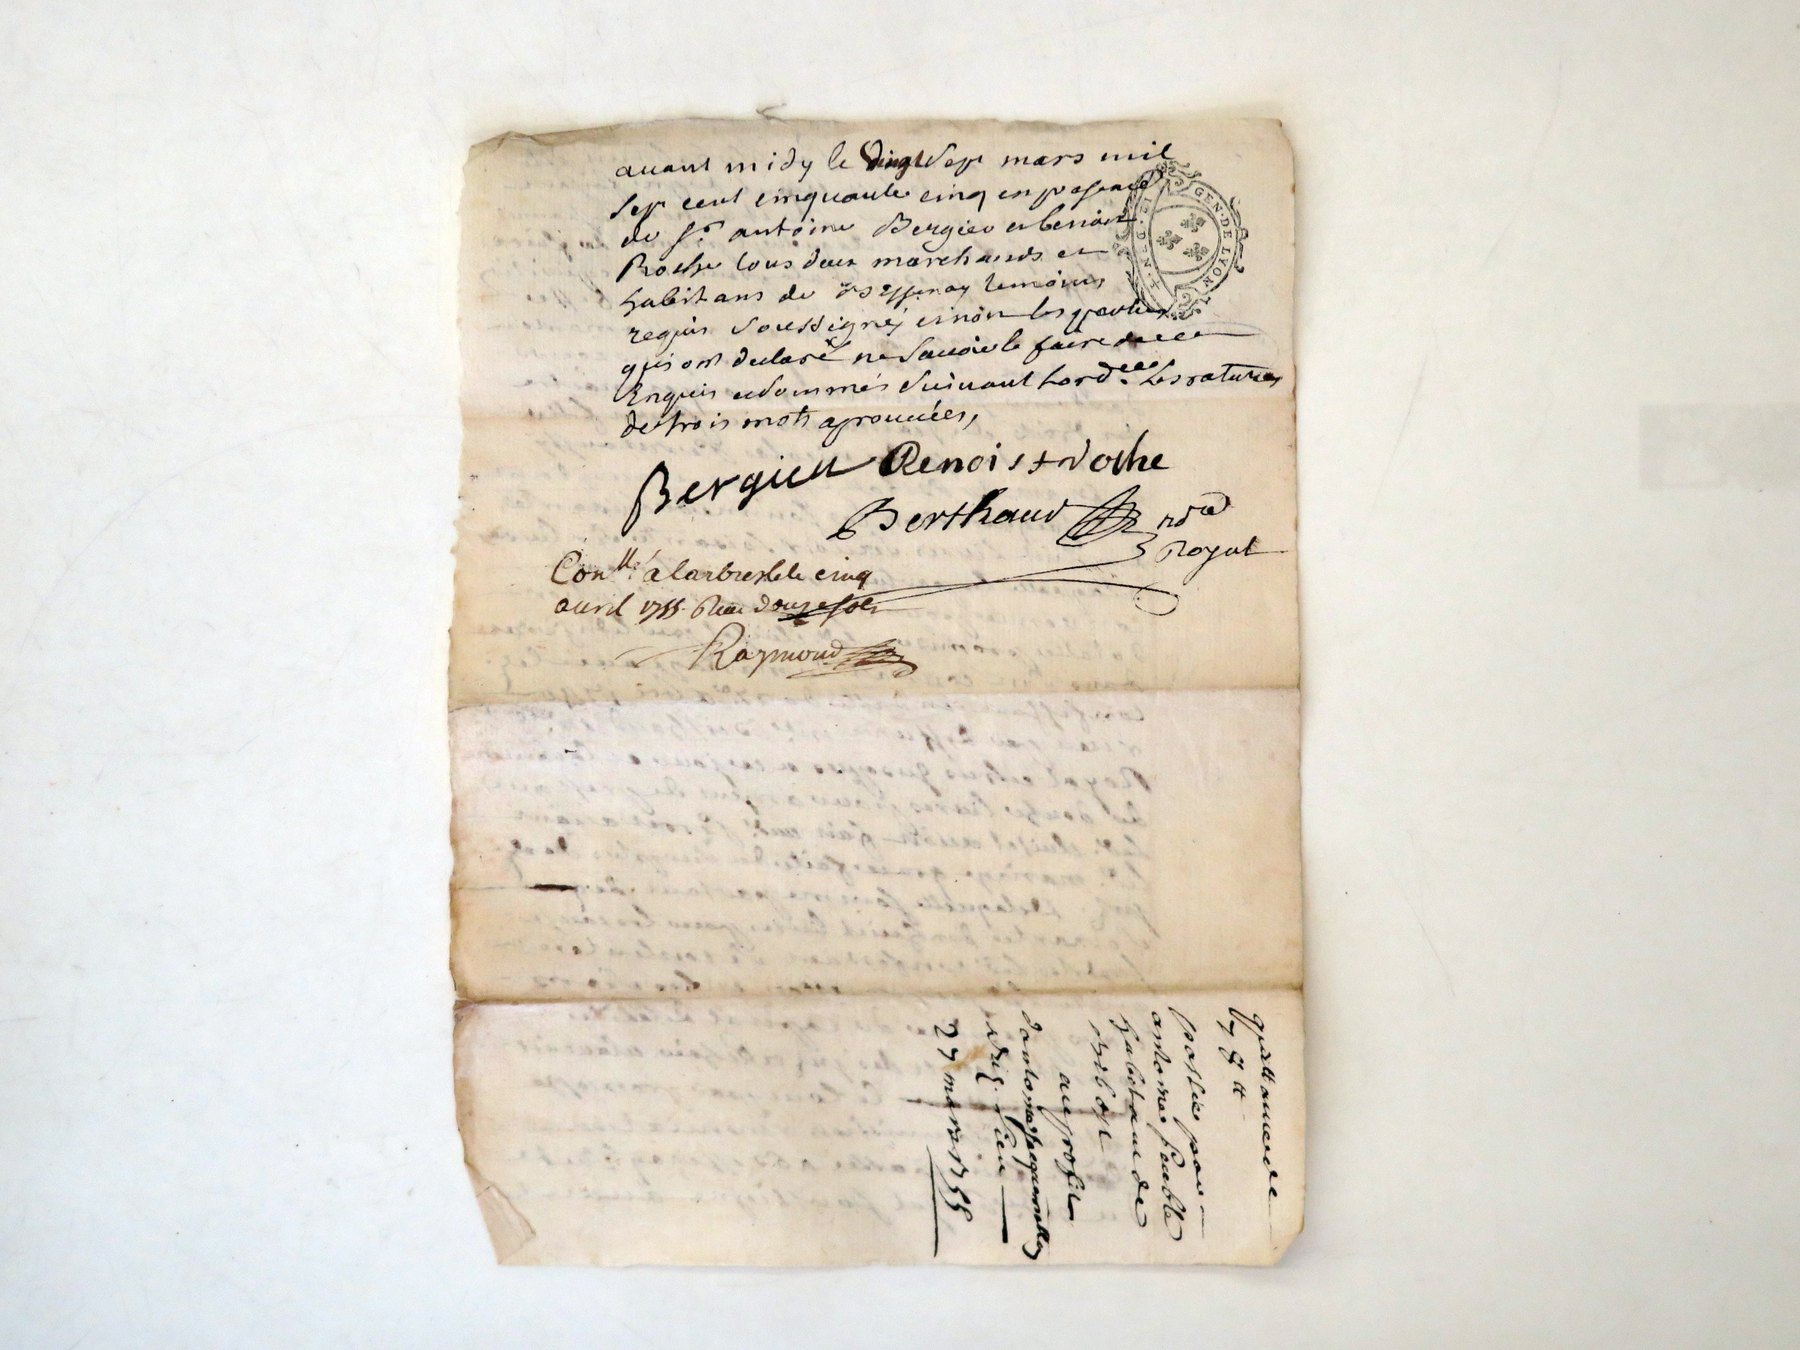 avant midy le vingt sept mars mil
sept cent cinquante cinq en presence
de sr. antoine Bergier et benoist
Roche tous deux marchands et
habitans de temoins
requis soussignés et non les parties
qui ont declaré ne savoir le faire de ce
enquis et sommés suivant lord.ce les ratures
de trois mots aprouvées,
Bergier Benoist Roche
Berthaud
Royal
GEN. DE LYON
Con.llé a larbresle le cinq
avril 1755. Reçu douze sols
Raymond
quittance de
78 ll
passée par
antoine
habitant de
au profit
dantoine
27 mars 1755